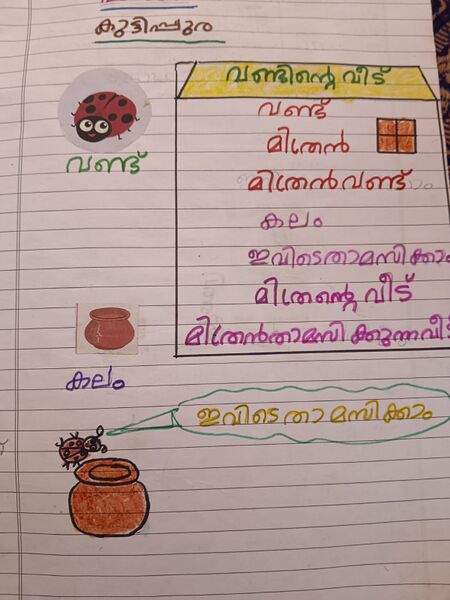 കുട്ടിപ്പുര
വണ്ടിന്റെ വീട്
വണ്ട്
മിത്രൻ
മിത്രൻവണ്ട്
കലം
ഇവിടെതാമസിക്കാം
മിത്രന്റെ വീട്
മിത്രൻതാമസിക്കുന്നവീട്
വണ്ട്
കലം
ഇവിടെതാമസിക്കാം